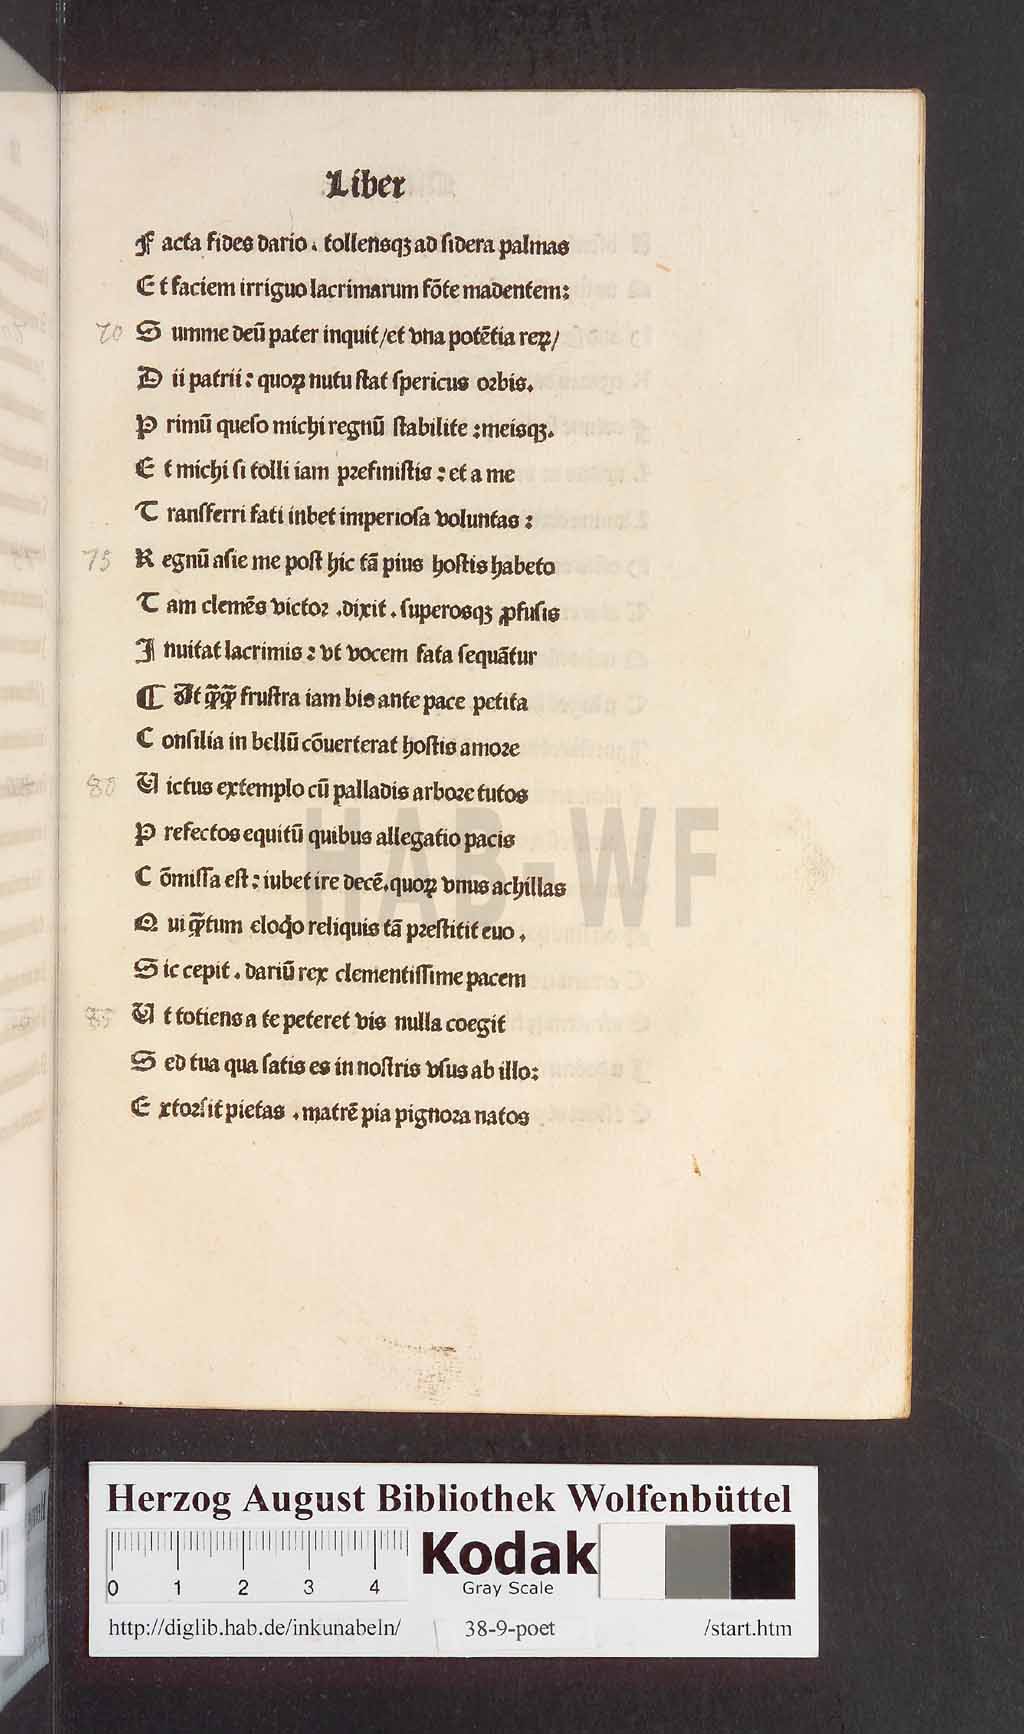 Liber
F acta fides dario . tollensqꝫ ad sidera palmas
E t faciem irriguo lacrimarum fõte madentem:
70 S umme deũ pater inquit/et vna potẽtia reꝝ/
D ii patrii : quoꝝ nutu stat spericus orbis.
P rimũ queso michi regnũ stabilite :meisqꝫ.
E t michi si tolli iam prefinistis : et a me
T ransferri fati iubet imperiosa voluntas :
75 R egnũ asie me post hic tã pius hostis habeto
T am clemẽs victor .dixit . superosqꝫ ꝓfusis
I nuitat lacrimis : vt vocem fata sequãtur
¶ At q̃q̃ frustra iam bis ante pace petita
C onsilia in bellũ cõuerterat hostis amore
80 V ictus extemplo cũ palladis arbore tutos
P refectos equitũ quibus allegatio pacis
C õmissa est : iubet ire decẽ.quoꝝ vnus achillas
Q ui q̃tum eloq̃o reliquis tã prestitit euo .
S ic cepit . dariũ rex clementissime pacem
85 V t totiens a te peteret vis nulla coegit
S ed tua qua satis es in nostris vsus ab illo:
E xtorsit pietas .matrẽ pia pignora natos
HAB-WF
Herzog August Bibliothek Wolfenbüttel
0 1 2 3 4
Kodak
Gray Scale
http://diglib.hab.de/inkunabeln/ 38-9-poet /start.htm